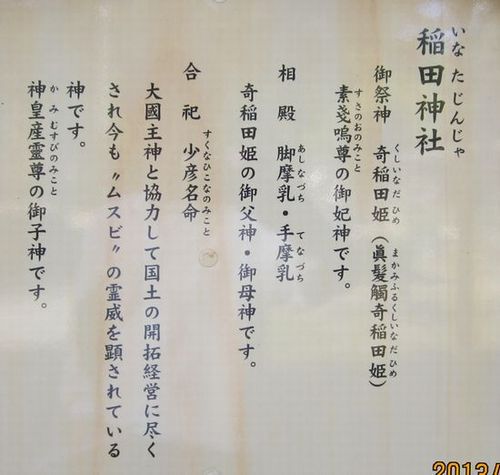 稲田神社
いなたじんじゃ
御祭神 奇稲田姫（眞髪觸奇稲田姫）
くしいなだひめ まかみふるくしいなだひめ
素戔嗚尊の御妃神です。
すさのおのみこと
相殿 脚摩乳・手摩乳
あしなづち てなづち
奇稲田姫の御父神・御母神です。
合祀 少彦名命
すくなひこなのみこと
大國主神と協力して国土の開拓経営に尽く
され今も〝ムスビ〟の霊威を顕されている
神です。
神皇産霊尊の御子神です。
かみむすびのみこと
2013/